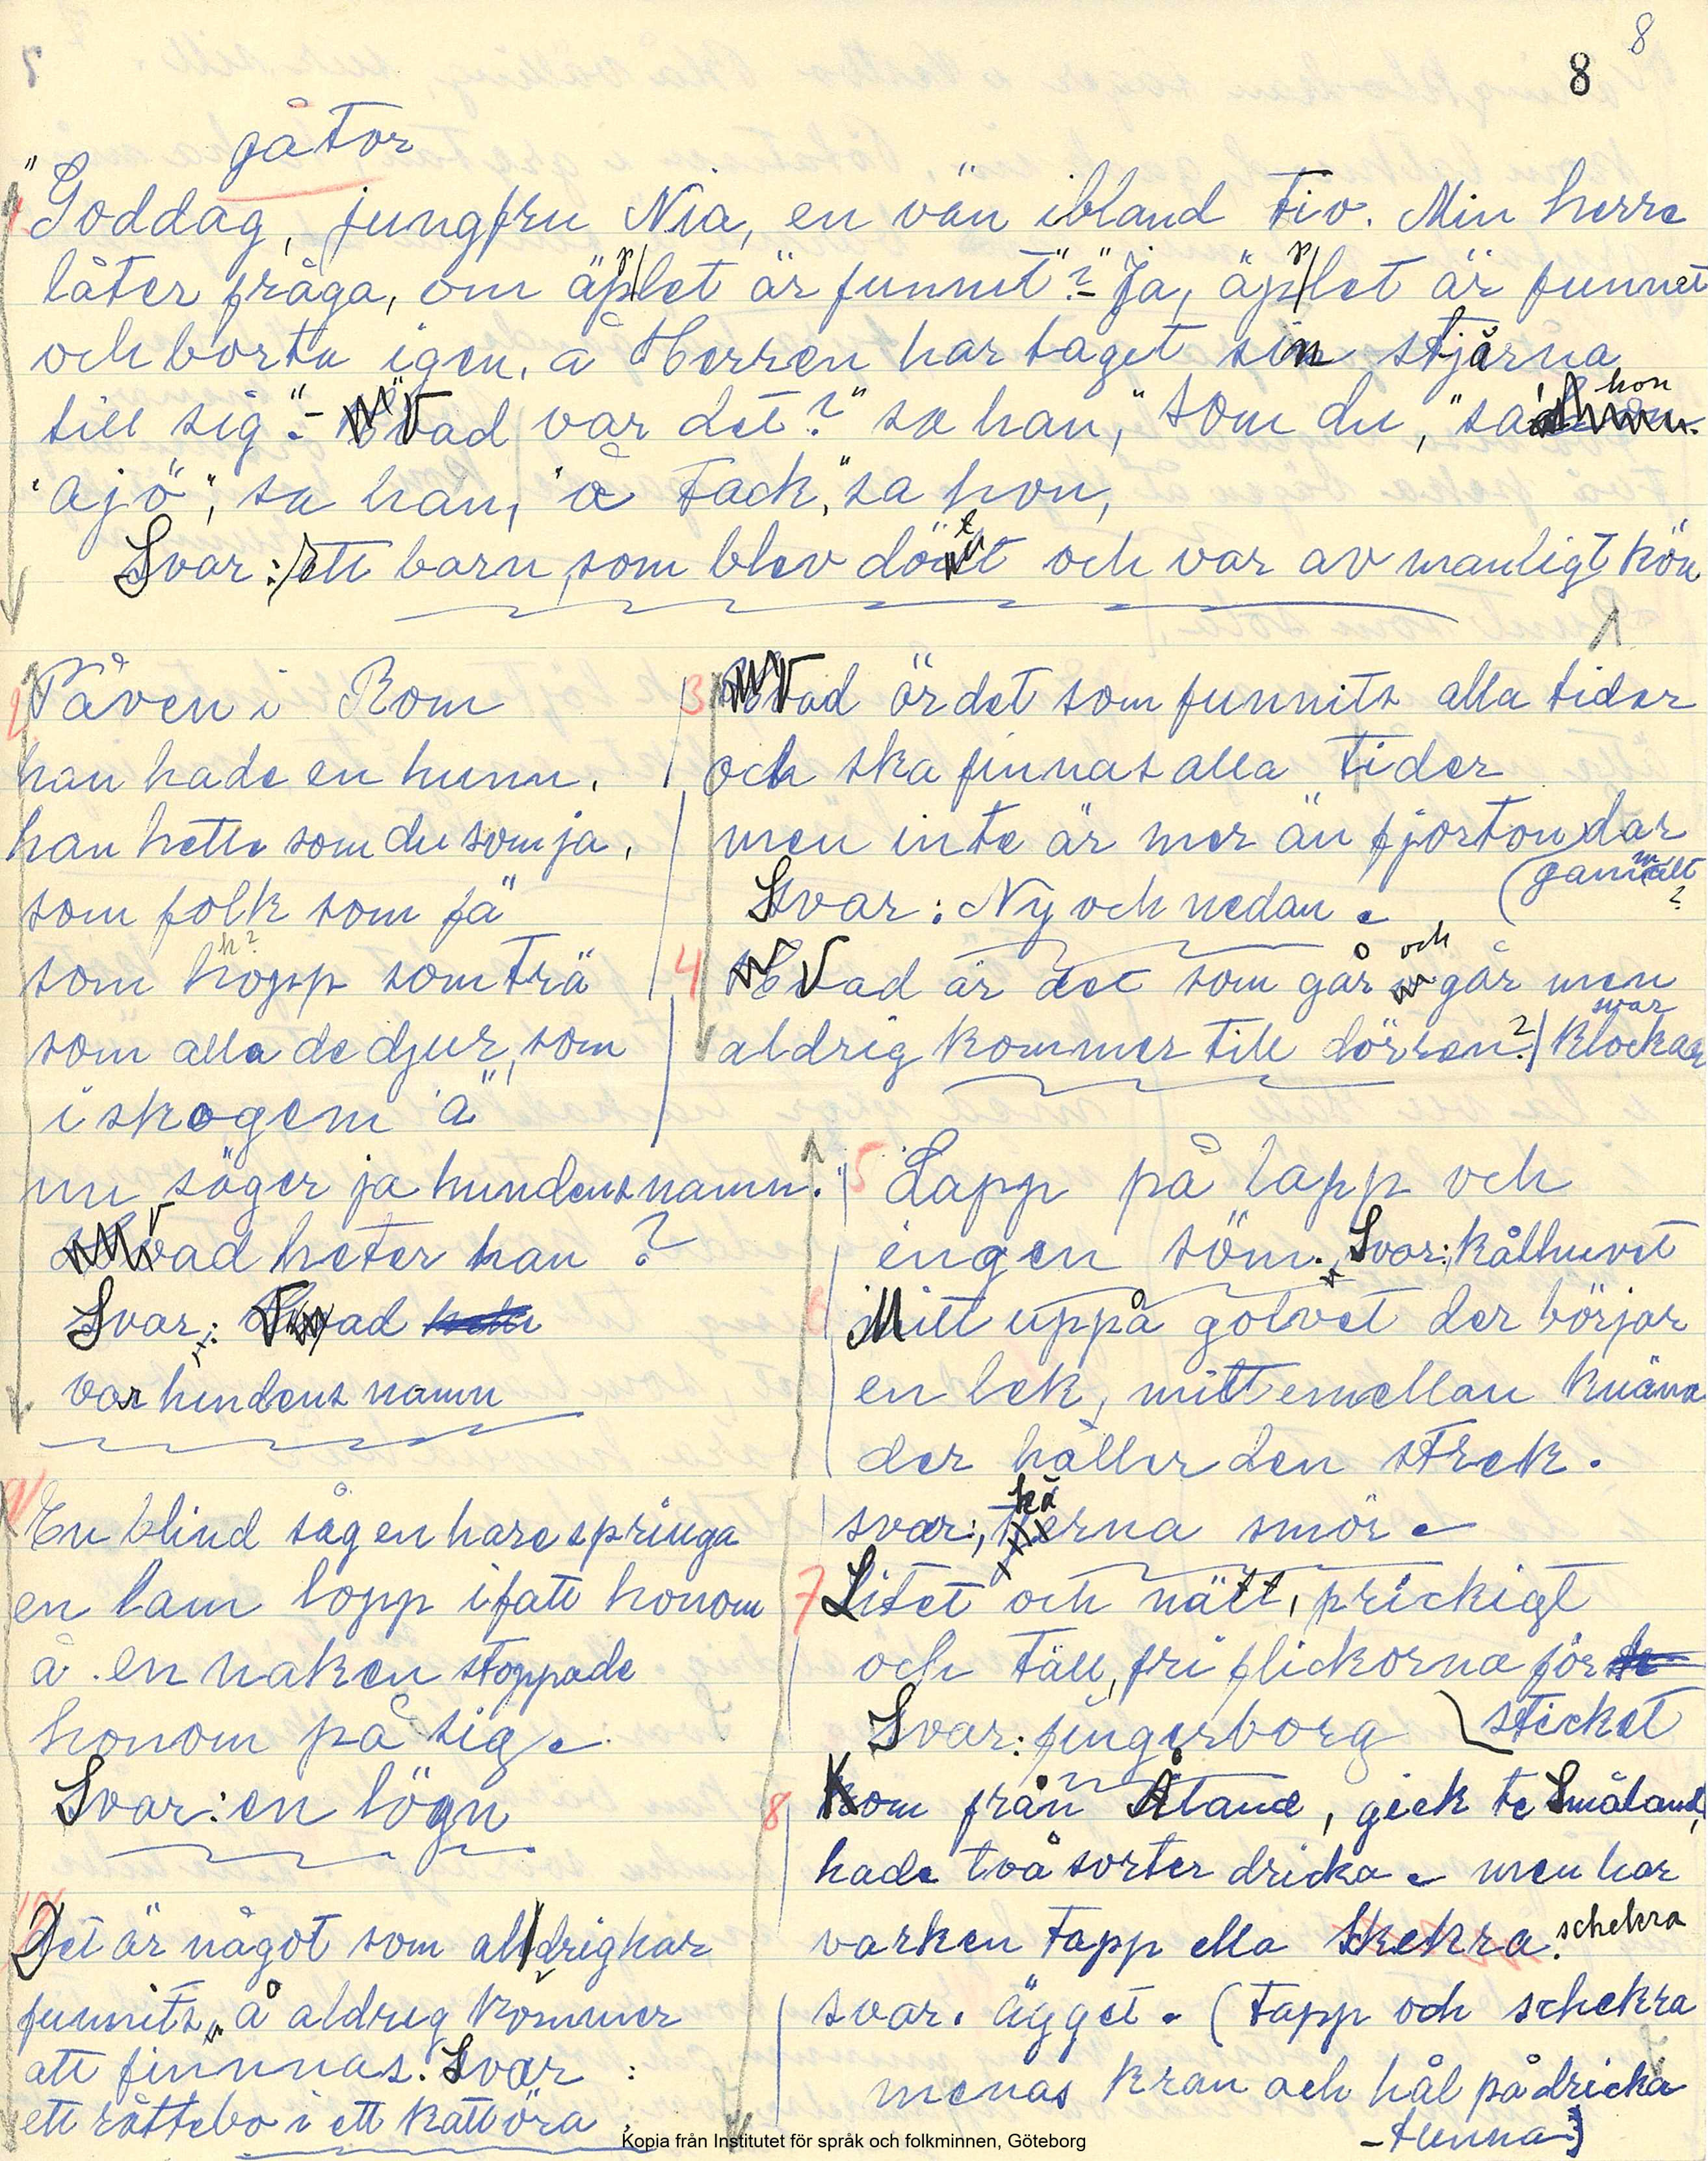 8
8
gåtor
1 "Goddag, jungfru Nia, en vän ibland tio. Min herre
låter fråga, om äpplet är funnit"? - "Ja, äpplet är funnet
och borta igen, å Herren har taget sin stjärna
till sig". - "Vad var det?" sa han, "som du", "sa hon
"ajö", sa han, "å tack", sa hon,
Svar: ett barn, som blev dött och var av manligt kön
2 Påven i Rom
han hade en hunn.
han hette som du som ja,
som folk som fä
som hopp som trä
h?
som alla de djur, som
i skogem ä
nu säger ja hundens namn.
vad heter han?
Svar: Vad
var hundens namn
3 Vad är det som funnits alla tider
och ska finnas alla tider
men inte är mer än fjorton dar
(gammalt
?
Svar: Ny och nedan.
4 Vad är det som går och går men
aldrig kommer till dörren? svar klockan
5 Lapp på lapp och
ingen söm. Svar: kålhuvet
6 Mitt uppå golvet der börjar
en lek, mitt emellan knäna
der håller den streck.
svar: kärna smör.
7 Litet och nätt, prickigt
och tätt, fri flickorna för
sticket
Svar: fingerborg
8 Kom från Åland, gick te Småland,
hade två sorter dricka. men har
varken tapp ella Skekra. schekra
svar. ägget. (tapp och schekra
menas kran och hål på dricka
-tunna)
9 En blind såg en hare springa
en lam lopp ifatt honom
å en naken stoppade
honom på sig.
Svar: en lögn
10 Det är något som aldrig har
funnits, å aldrig kommer
att finnas. Svar:
ett råttebo i ett kattöra.
Kopia från Institutet för språk och folkminnen, Göteborg